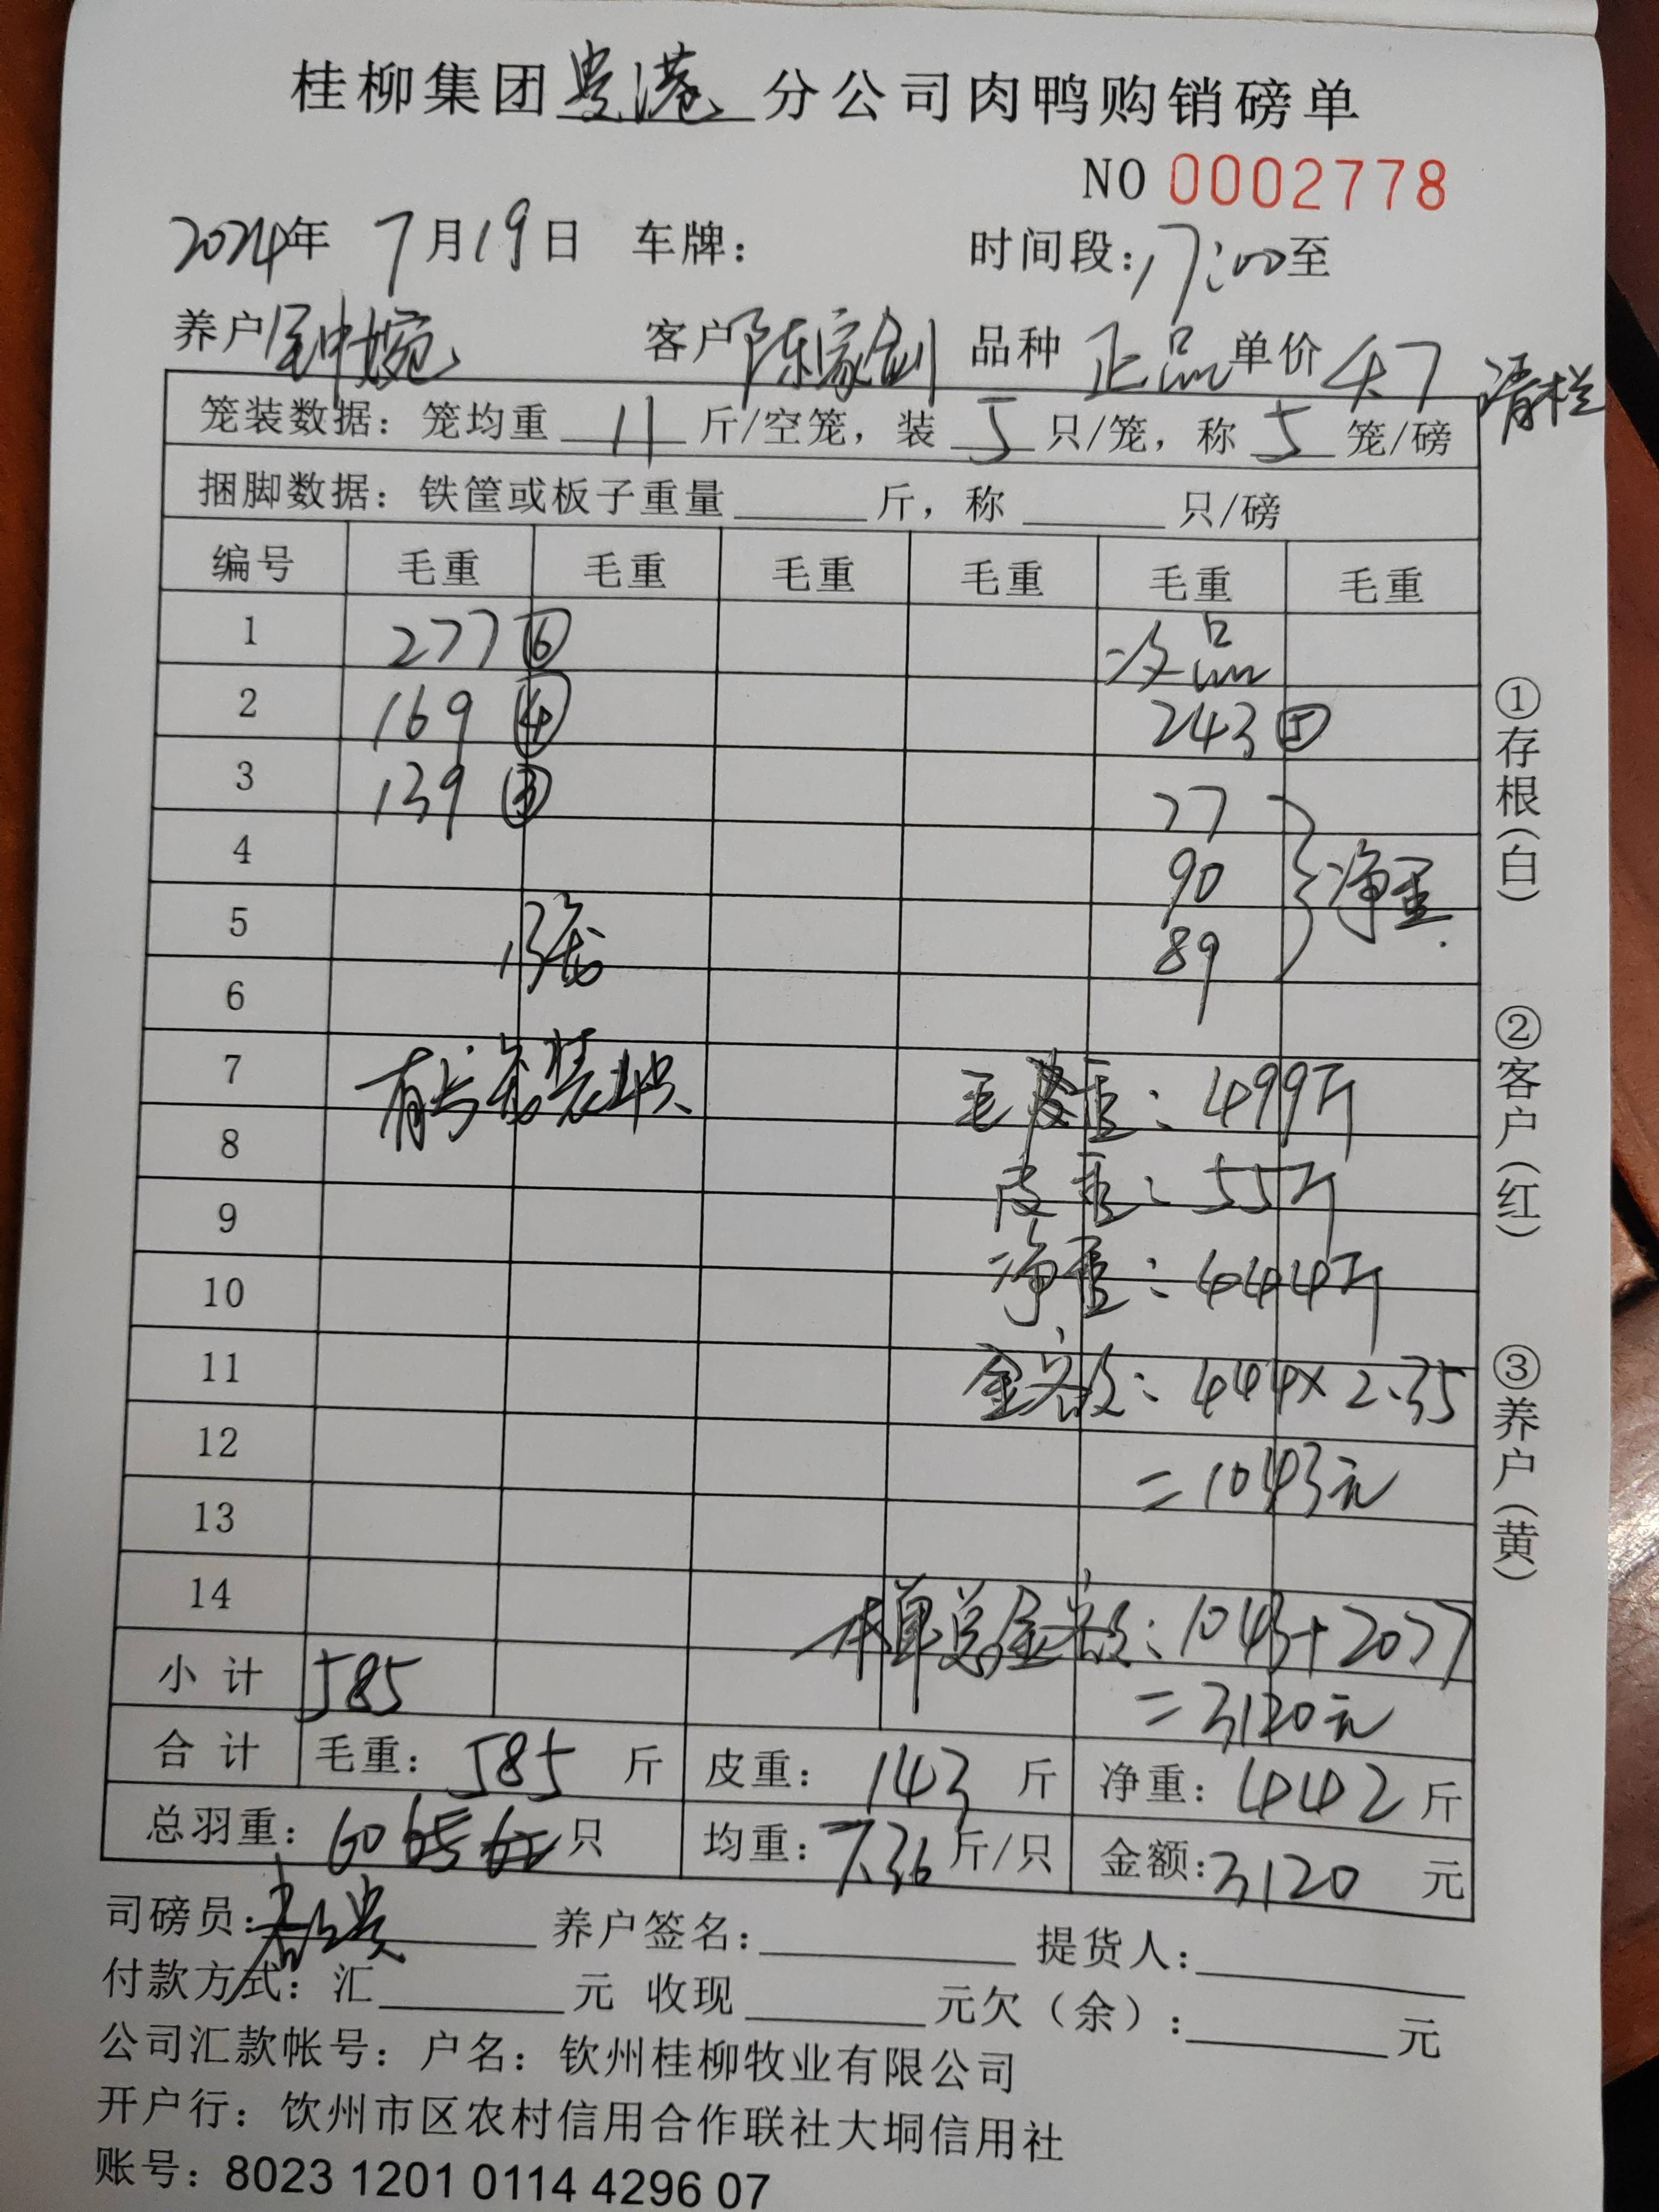 桂柳集团贵港分公司肉鸭购销磅单
NO 0002778
2024年 7月19日 车牌： 时间段：17:00至
养户 钟婉 客户 陈家剑 品种 正品 单价 4.7 清栏
笼装数据：笼均重 11 斤/空笼，装 5 只/笼，称 5 笼/磅
捆脚数据：铁筐或板子重量 斤，称 只/磅
编号 毛重 毛重 毛重 毛重 毛重 毛重
1 277 ⑥ 次品
2 169 ④ 243 ⑤
3 139 ③ 27
4 90 净重
5 13 89
6
7 有 装 只 毛重：499斤
8 皮重：55斤
9
10 净重：444斤
11 金额：444×2.35
12 =1043元
13
14 本单总金额：1043+2077
小计 585 =3120元
合计 毛重：585 斤 皮重：143 斤 净重：442 斤
总羽重：60 只 均重：7.36 斤/只 金额：3120 元
司磅员： 养户签名： 提货人：
付款方式：汇 元 收现 元欠（余）： 元
公司汇款帐号：户名：钦州桂柳牧业有限公司
开户行：饮州市区农村信用合作联社大垌信用社
账号：8023 1201 0114 4296 07
①存根（白）
②客户（红）
③养户（黄）